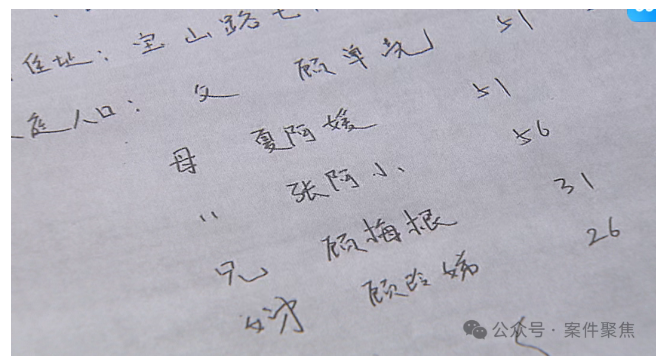 住址：宝山路七
庭人口：父 顾单 51
母 夏阿媛 51
〃 张阿小 56
兄 顾梅根 31
顾玲娣 26
公众号·案件聚焦